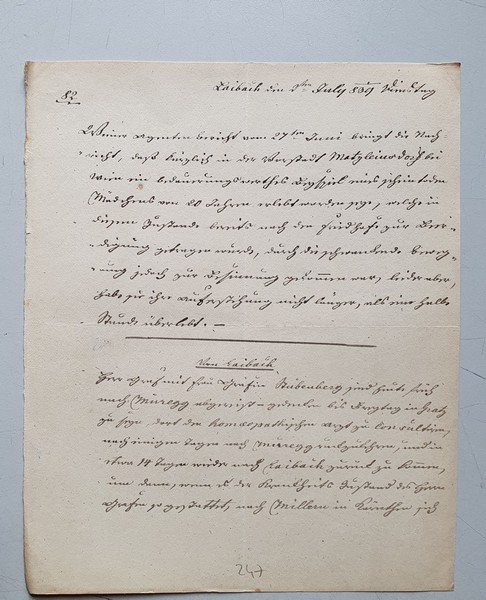 82
Laibach den 2ten July 839 Dienstag
Wiener Agenten bericht vom 27ten Juni bringt die Nach-
richt, daß kürzlich in der Vorstadt Matzleinsdorf bei
Wien ein bedauerungswerthes Beyspiel eines scheintodten
Mädchens von 20 Jahren erlebt worden seye, welche in
diesem Zustande bereits nach dem Friedhofe zur Beer-
digung getragen wurde, durch die schwankende beweg-
ung jedoch zur Besinnung gekommen war, leider aber,
habe sie ihre Auferstehung nicht länger, als eine halbe
Stunde überlebt. —
Von Laibach
Herr Graf mit Frau Gräfin Stubenberg sind heute früh
nach Muregg abgereist – gedenken bis Freytag in Gratz
zu seye, dort den homöopathischen Arzt zu Consultiren,
nach einigen Tagen nach Muregg zurückzukehren, und in
etwa 14 Tagen wieder nach Laibach zurück zu kommen,
um dann, wenn es der Krankheits Zustand des Herrn
Grafen so gestattet, nach Millern in Kärnthen sich
247